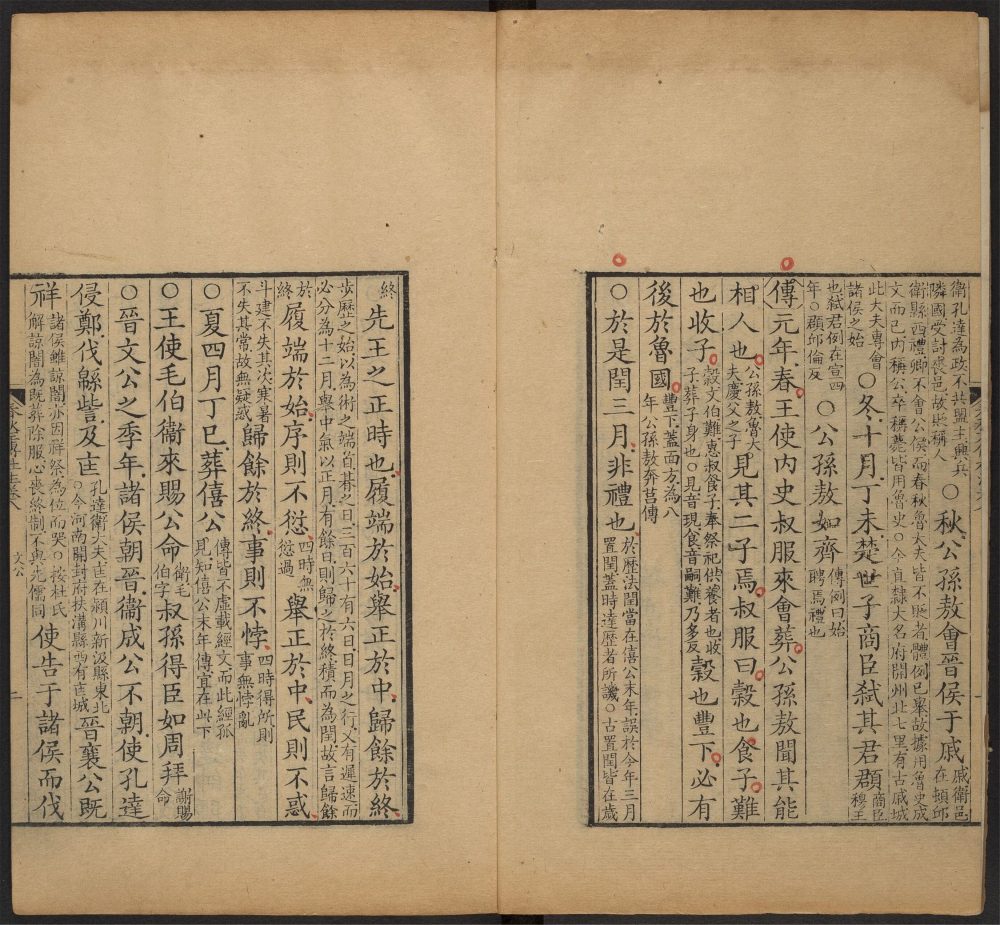 衛孔達為政不共盟主興兵
隣國受討喪邑故貶稱人
○秋公孫敖會晉侯于戚
戚衛邑
在頓邱
衛縣西禮卿不會公侯而春秋魯大夫皆不貶者體例已舉故據用魯史成
文而已內稱公卒稱薨皆用魯史○今直隸大名府開州北七里有古戚城
此大夫專會
諸侯之始
○冬十月丁未楚世子商臣弒其君頵
商臣
穆王
也弒君例在宣四
年○頵邱倫反
○公孫敖如齊
傳例曰始
聘焉禮也
傳元年春王使內史叔服來會葬公孫敖聞其能
相人也
公孫敖魯大
夫慶父之子
見其二子焉叔服曰穀也食子難
也收子
穀文伯難惠叔食子奉祭祀供養者也收
子葬子身也○見音現食音嗣難乃多反
穀也豐下必有
後於魯國
豐下蓋面方為八
年公孫敖奔莒傳
○於是閏三月非禮也
於歷法閏當在僖公末年誤於今年三月
置閏蓋時達歷者所譏○古置閏皆在歲
終
先王之正時也履端於始舉正於中歸餘於終
步歷之始以為術之端首朞之日三百六十有六日日月之行又有遲速而
必分為十二月舉中氣以正月有餘日則歸之於終積而為閏故言歸餘
於
終
履端於始序則不愆
四時無
愆過
舉正於中民則不惑
斗建不失其次寒暑
不失其常故無疑惑
歸餘於終事則不悖
四時得所則
事無悖亂
○夏四月丁巳葬僖公
傳皆不虛載經文而此經孤
見知僖公末年傳宜在此下
○王使毛伯衞來賜公命
衛毛
伯字
叔孫得臣如周拜
謝賜
命
○晉文公之季年諸侯朝晉衞成公不朝使孔達
侵鄭伐緜訾及匡
孔達衛大夫匡在潁川新汲縣東北
○今河南開封府扶溝縣西有匡城
晉襄公既
祥
諸侯雖諒闇亦因祥祭為位而哭○按杜氏
解諒闇為既葬除服心喪終制不與先儒同
使告于諸侯而伐
文公